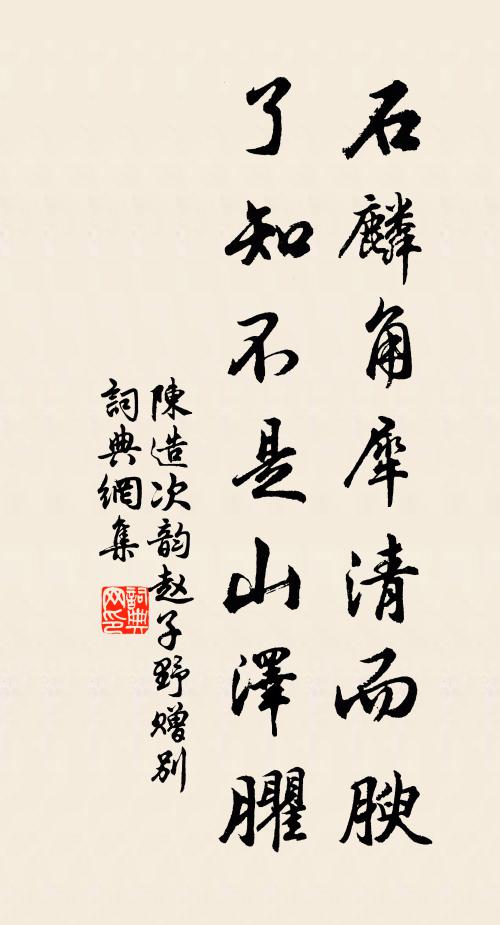 石麟角犀清而腴
了知不是山澤臞
陳造次韵赵子野赠别
詞典網集
詞典网印